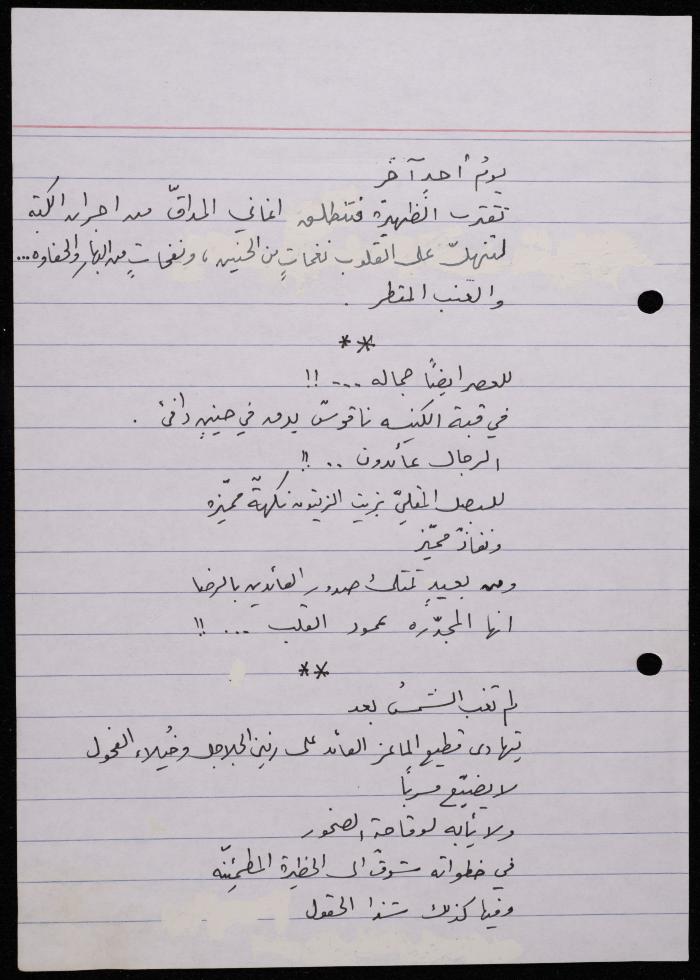 يومُ أحدٍ آخَر
تقترب الظهيرة فتنطلق اغاني المداقّ من اجران الكبّه
لتنهلّ على القلوب نغماتٍ من الحنين، ونفحاتٍ من البهار والحفاوه...
والعنب المقطر.
**
للعصر ايضًا جماله ... !!
في قبة الكنيسه ناقوسٌ يدق في حنينٍ دافئ.
الرجال عائدون .. !!
للبصل المقليّ بزيت الزيتون نكهةٌ مميّزه
ونفاذٌ مميّز
ومن بعيدٍ تمتلئ صدور العائدين بالرضا
انها المجدّره عمود القلب ... !!
**
لم تغب الشمسُ بعد
يتهادى قطيع الماعز العائد على رنين الجلاجل وخُيلاء الفحول
لا يضيّع دربًا
ولا يأبه لوقاحة الصخور
في خطواته شوقٌ الى الحظيرة المطمئنّه
وفيها كذلك شذا الحقول